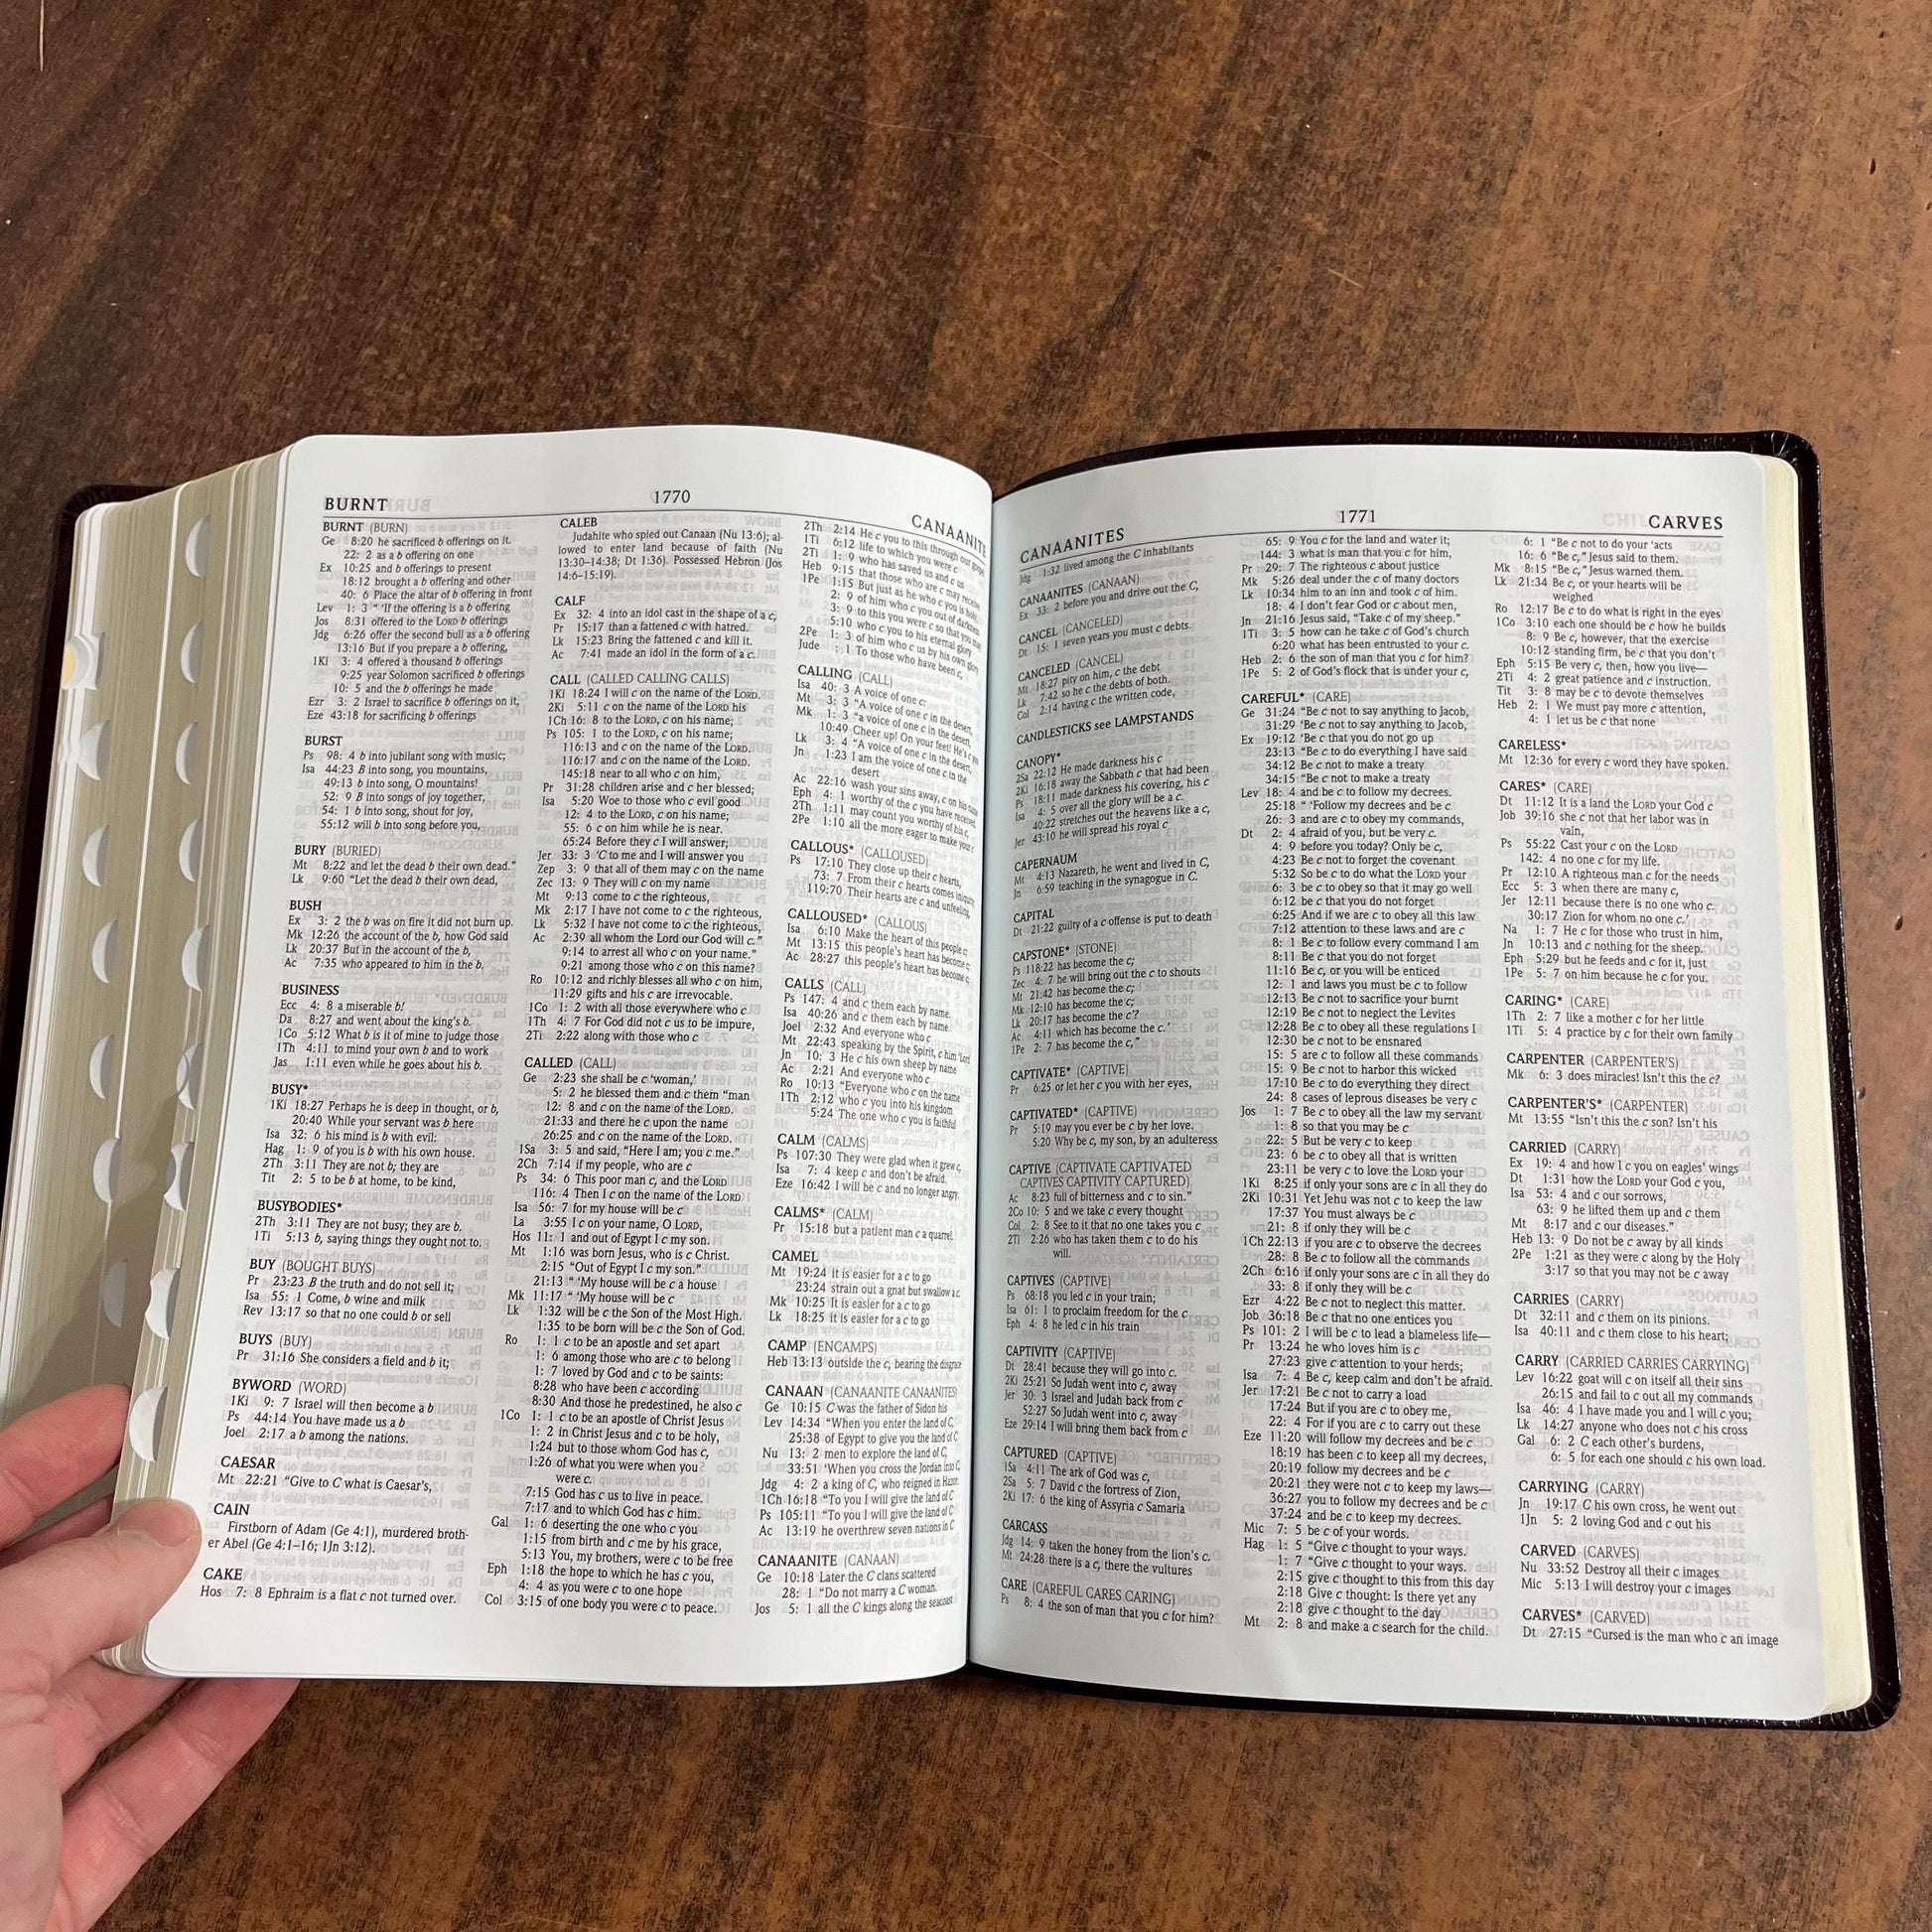 BURNT
1770
CANAANITE
BURNT (BURN)
Ge 8:20 he sacrificed b offerings on it.
22: 2 as a b offering on one
Ex 10:25 and b offerings to present
18:12 brought a b offering and other
40: 6 Place the altar of b offering in front
Lev 1: 3 " 'If the offering is a b offering
Jos 8:31 offered to the LORD b offerings
Jdg 6:26 offer the second bull as a b offering
13:16 But if you prepare a b offering,
1Ki 3: 4 offered a thousand b offerings
9:25 year Solomon sacrificed b offerings
10: 5 and the b offerings he made
Ezr 3: 2 Israel to sacrifice b offerings on it,
Eze 43:18 for sacrificing b offerings
BURST
Ps 98: 4 b into jubilant song with music;
Isa 44:23 B into song, you mountains,
49:13 b into song, O mountains!
52: 9 B into songs of joy together,
54: 1 b into song, shout for joy,
55:12 will b into song before you,
BURY (BURIED)
Mt 8:22 and let the dead b their own dead."
Lk 9:60 "Let the dead b their own dead,
BUSH
Ex 3: 2 the b was on fire it did not burn up.
Mk 12:26 the account of the b, how God said
Lk 20:37 But in the account of the b,
Ac 7:35 who appeared to him in the b.
BUSINESS
Ecc 4: 8 a miserable b!
Da 8:27 and went about the king's b.
1Co 5:12 What b is it of mine to judge those
1Th 4:11 to mind your own b and to work
Jas 1:11 even while he goes about his b.
BUSY*
1Ki 18:27 Perhaps he is deep in thought, or b,
20:40 While your servant was b here
Isa 32: 6 his mind is b with evil:
Hag 1: 9 of you is b with his own house.
2Th 3:11 They are not b; they are
Tit 2: 5 to be b at home, to be kind,
BUSYBODIES*
2Th 3:11 They are not busy; they are b.
1Ti 5:13 b, saying things they ought not to.
BUY (BOUGHT BUYS)
Pr 23:23 B the truth and do not sell it;
Isa 55: 1 Come, b wine and milk
Rev 13:17 so that no one could b or sell
BUYS (BUY)
Pr 31:16 She considers a field and b it;
BYWORD (WORD)
1Ki 9: 7 Israel will then become a b
Ps 44:14 You have made us a b
Joel 2:17 a b among the nations.
CAESAR
Mt 22:21 "Give to C what is Caesar's,
CAIN
Firstborn of Adam (Ge 4:1), murdered broth-
er Abel (Ge 4:1–16; 1Jn 3:12).
CAKE
Hos 7: 8 Ephraim is a flat c not turned over.
CALEB
Judahite who spied out Canaan (Nu 13:6); al-
lowed to enter land because of faith (Nu
13:30–14:38; Dt 1:36). Possessed Hebron (Jos
14:6–15:19).
CALF
Ex 32: 4 into an idol cast in the shape of a c,
Pr 15:17 than a fattened c with hatred.
Lk 15:23 Bring the fattened c and kill it.
Ac 7:41 made an idol in the form of a c.
CALL (CALLED CALLING CALLS)
1Ki 18:24 I will c on the name of the LORD.
2Ki 5:11 c on the name of the LORD his
1Ch 16: 8 to the LORD, c on his name;
Ps 105: 1 to the LORD, c on his name;
116:13 and c on the name of the LORD.
116:17 and c on the name of the LORD.
145:18 near to all who c on him,
Pr 31:28 children arise and c her blessed;
Isa 5:20 Woe to those who c evil good
12: 4 to the LORD, c on his name;
55: 6 c on him while he is near.
65:24 Before they c I will answer;
Jer 33: 3 'C to me and I will answer you
Zep 3: 9 that all of them may c on the name
Zec 13: 9 They will c on my name
Mt 9:13 come to c the righteous,
Mk 2:17 I have not come to c the righteous,
Lk 5:32 I have not come to c the righteous,
Ac 2:39 all whom the Lord our God will c."
9:14 to arrest all who c on your name."
9:21 among those who c on this name?
Ro 10:12 and richly blesses all who c on him,
11:29 gifts and his c are irrevocable.
1Co 1: 2 with all those everywhere who c
1Th 4: 7 For God did not c us to be impure,
2Ti 2:22 along with those who c
CALLED (CALL)
Ge 2:23 she shall be c 'woman,'
5: 2 he blessed them and c them "man
12: 8 and c on the name of the LORD.
21:33 and there he c upon the name
26:25 and c on the name of the LORD.
1Sa 3: 5 and said, "Here I am; you c me."
2Ch 7:14 if my people, who are c
Ps 34: 6 This poor man c, and the LORD
116: 4 Then I c on the name of the LORD
Isa 56: 7 for my house will be c
La 3:55 I c on your name, O LORD,
Hos 11: 1 and out of Egypt I c my son.
Mt 1:16 was born Jesus, who is c Christ.
2:15 "Out of Egypt I c my son."
21:13 " 'My house will be c a house
Mk 11:17 " 'My house will be c
Lk 1:32 will be c the Son of the Most High.
1:35 to be born will be c the Son of God.
Ro 1: 1 c to be an apostle and set apart
1: 6 among those who are c to belong
1: 7 loved by God and c to be saints:
8:28 who have been c according
8:30 And those he predestined, he also c
1Co 1: 1 c to be an apostle of Christ Jesus
1: 2 in Christ Jesus and c to be holy,
1:24 but to those whom God has c,
1:26 of what you were when you
were c.
7:15 God has c us to live in peace.
7:17 and to which God has c him.
Gal 1: 6 deserting the one who c you
1:15 from birth and c me by his grace,
5:13 You, my brothers, were c to be free
Eph 1:18 the hope to which he has c you,
4: 4 as you were c to one hope
Col 3:15 of one body you were c to peace.
2Th 2:14 He c you to this through our gospel
1Ti 6:12 life to which you were c
2Ti 1: 9 who has saved us and c us
Heb 9:15 that those who are c may receive
1Pe 1:15 But just as he who c you is holy,
2: 9 of him who c you out of darkness
3: 9 to this you were c so that you may
5:10 who c you to his eternal glory
2Pe 1: 3 of him who c us by his own glory
Jude : 1 To those who have been c,
CALLING (CALL)
Isa 40: 3 A voice of one c:
Mt 3: 3 "A voice of one c in the desert,
Mk 1: 3 "a voice of one c in the desert,
10:49 Cheer up! On your feet! He's c you
Lk 3: 4 "A voice of one c in the desert,
Jn 1:23 I am the voice of one c in the
desert
Ac 22:16 wash your sins away, c on his name
Eph 4: 1 worthy of the c you have received.
2Th 1:11 may count you worthy of his c,
2Pe 1:10 all the more eager to make your c
CALLOUS* (CALLOUSED)
Ps 17:10 They close up their c hearts,
73: 7 From their c hearts comes iniquity
119:70 Their hearts are c and unfeeling,
CALLOUSED* (CALLOUS)
Isa 6:10 Make the heart of this people c;
Mt 13:15 this people's heart has become c;
Ac 28:27 this people's heart has become c;
CALLS (CALL)
Ps 147: 4 and c them each by name.
Isa 40:26 and c them each by name.
Joel 2:32 And everyone who c
Mt 22:43 speaking by the Spirit, c him 'Lord'
Jn 10: 3 He c his own sheep by name
Ac 2:21 And everyone who c
Ro 10:13 "Everyone who c on the name
1Th 2:12 who c you into his kingdom
5:24 The one who c you is faithful
CALM (CALMS)
Ps 107:30 They were glad when it grew c,
Isa 7: 4 keep c and don't be afraid.
Eze 16:42 I will be c and no longer angry.
CALMS* (CALM)
Pr 15:18 but a patient man c a quarrel.
CAMEL
Mt 19:24 it is easier for a c to go
23:24 strain out a gnat but swallow a c.
Mk 10:25 It is easier for a c to go
Lk 18:25 it is easier for a c to go
CAMP (ENCAMPS)
Heb 13:13 outside the c, bearing the disgrace
CANAAN (CANAANITE CANAANITES)
Ge 10:15 C was the father of Sidon his
Lev 14:34 "When you enter the land of C,
25:38 of Egypt to give you the land of C
Nu 13: 2 men to explore the land of C,
33:51 'When you cross the Jordan into C,
Jdg 4: 2 a king of C, who reigned in Hazor.
1Ch 16:18 "To you I will give the land of C
Ps 105:11 "To you I will give the land of C
Ac 13:19 he overthrew seven nations in C
CANAANITE (CANAAN)
Ge 10:18 Later the C clans scattered
28: 1 "Do not marry a C woman.
Jos 5: 1 all the C kings along the seacoast
CANAANITES
1771
CARVES
Jdg 1:32 lived among the C inhabitants
CANAANITES (CANAAN)
Ex 33: 2 before you and drive out the C,
CANCEL (CANCELED)
Dt 15: 1 seven years you must c debts.
CANCELED (CANCEL)
Mt 18:27 pity on him, c the debt
Lk 7:42 so he c the debts of both.
Col 2:14 having c the written code,
CANDLESTICKS see LAMPSTANDS
CANOPY*
2Sa 22:12 He made darkness his c
2Ki 16:18 away the Sabbath c that had been
Ps 18:11 made darkness his covering, his c
Isa 4: 5 over all the glory will be a c.
40:22 stretches out the heavens like a c,
Jer 43:10 he will spread his royal c
CAPERNAUM
Mt 4:13 Nazareth, he went and lived in C,
Jn 6:59 teaching in the synagogue in C.
CAPITAL
Dt 21:22 guilty of a c offense is put to death
CAPSTONE* (STONE)
Ps 118:22 has become the c;
Zec 4: 7 he will bring out the c to shouts
Mt 21:42 has become the c;
Mk 12:10 has become the c;
Lk 20:17 has become the c'?
Ac 4:11 which has become the c.'
1Pe 2: 7 has become the c,"
CAPTIVATE* (CAPTIVE)
Pr 6:25 or let her c you with her eyes,
CAPTIVATED* (CAPTIVE)
Pr 5:19 may you ever be c by her love.
5:20 Why be c, my son, by an adulteress
CAPTIVE (CAPTIVATE CAPTIVATED
CAPTIVES CAPTIVITY CAPTURED)
Ac 8:23 full of bitterness and c to sin."
2Co 10: 5 and we take c every thought
Col 2: 8 See to it that no one takes you c
2Ti 2:26 who has taken them c to do his
will.
CAPTIVES (CAPTIVE)
Ps 68:18 you led c in your train;
Isa 61: 1 to proclaim freedom for the c
Eph 4: 8 he led c in his train
CAPTIVITY (CAPTIVE)
Dt 28:41 because they will go into c.
2Ki 25:21 So Judah went into c, away
Jer 30: 3 Israel and Judah back from c
52:27 So Judah went into c, away
Eze 29:14 I will bring them back from c
CAPTURED (CAPTIVE)
1Sa 4:11 The ark of God was c,
2Sa 5: 7 David c the fortress of Zion,
2Ki 17: 6 the king of Assyria c Samaria
CARCASS
Jdg 14: 9 taken the honey from the lion's c.
Mt 24:28 there is a c, there the vultures
CARE (CAREFUL CARES CARING)
Ps 8: 4 the son of man that you c for him?
65: 9 You c for the land and water it;
144: 3 what is man that you c for him,
Pr 29: 7 The righteous c about justice
Mk 5:26 deal under the c of many doctors
Lk 10:34 him to an inn and took c of him.
18: 4 I don't fear God or c about men,
Jn 21:16 Jesus said, "Take c of my sheep."
1Ti 3: 5 how can he take c of God's church
6:20 what has been entrusted to your c.
Heb 2: 6 the son of man that you c for him?
1Pe 5: 2 of God's flock that is under your c,
CAREFUL* (CARE)
Ge 31:24 "Be c not to say anything to Jacob,
31:29 'Be c not to say anything to Jacob,
Ex 19:12 'Be c that you do not go up
23:13 "Be c to do everything I have said
34:12 Be c not to make a treaty
34:15 "Be c not to make a treaty
Lev 18: 4 and be c to follow my decrees.
25:18 " 'Follow my decrees and be c
26: 3 and are c to obey my commands,
Dt 2: 4 afraid of you, but be very c.
4: 9 before you today? Only be c,
4:23 Be c not to forget the covenant
5:32 So be c to do what the LORD your
6: 3 be c to obey so that it may go well
6:12 be c that you do not forget
6:25 And if we are c to obey all this law
7:12 attention to these laws and are c
8: 1 Be c to follow every command I am
8:11 Be c that you do not forget
11:16 Be c, or you will be enticed
12: 1 and laws you must be c to follow
12:13 Be c not to sacrifice your burnt
12:19 Be c not to neglect the Levites
12:28 Be c to obey all these regulations I
12:30 be c not to be ensnared
15: 5 are c to follow all these commands
15: 9 Be c not to harbor this wicked
17:10 Be c to do everything they direct
24: 8 cases of leprous diseases be very c
Jos 1: 7 Be c to obey all the law my servant
1: 8 so that you may be c
22: 5 But be very c to keep
23: 6 be c to obey all that is written
23:11 be very c to love the LORD your
1Ki 8:25 if only your sons are c in all they do
2Ki 10:31 Yet Jehu was not c to keep the law
17:37 You must always be c
21: 8 if only they will be c
1Ch 22:13 if you are c to observe the decrees
28: 8 Be c to follow all the commands
2Ch 6:16 if only your sons are c in all they do
33: 8 if only they will be c
Ezr 4:22 Be c not to neglect this matter.
Job 36:18 Be c that no one entices you
Ps 101: 2 I will be c to lead a blameless life—
Pr 13:24 he who loves him is c
27:23 give c attention to your herds;
Isa 7: 4 Be c, keep calm and don't be afraid.
Jer 17:21 Be c not to carry a load
17:24 But if you are c to obey me,
22: 4 For if you are c to carry out these
Eze 11:20 will follow my decrees and be c
18:19 has been c to keep all my decrees,
20:19 follow my decrees and be c
20:21 they were not c to keep my laws—
36:27 you to follow my decrees and be c
37:24 and be c to keep my decrees.
Mic 7: 5 be c of your words.
Hag 1: 5 "Give c thought to your ways.
1: 7 "Give c thought to your ways.
2:15 give c thought to this from this day
2:18 Give c thought: Is there yet any
2:18 give c thought to the day
Mt 2: 8 and make a c search for the child.
6: 1 "Be c not to do your 'acts
16: 6 "Be c," Jesus said to them.
Mk 8:15 "Be c," Jesus warned them.
Lk 21:34 Be c, or your hearts will be
weighed
Ro 12:17 Be c to do what is right in the eyes
1Co 3:10 each one should be c how he builds
8: 9 Be c, however, that the exercise
10:12 standing firm, be c that you don't
Eph 5:15 Be very c, then, how you live—
2Ti 4: 2 great patience and c instruction.
Tit 3: 8 may be c to devote themselves
Heb 2: 1 We must pay more c attention,
4: 1 let us be c that none
CARELESS*
Mt 12:36 for every c word they have spoken.
CARES* (CARE)
Dt 11:12 It is a land the LORD your God c
Job 39:16 she c not that her labor was in
vain,
Ps 55:22 Cast your c on the LORD
142: 4 no one c for my life.
Pr 12:10 A righteous man c for the needs
Ecc 5: 3 when there are many c,
Jer 12:11 because there is no one who c.
30:17 Zion for whom no one c.'
Na 1: 7 He c for those who trust in him,
Jn 10:13 and c nothing for the sheep.
Eph 5:29 but he feeds and c for it, just
1Pe 5: 7 on him because he c for you.
CARING* (CARE)
1Th 2: 7 like a mother c for her little
1Ti 5: 4 practice by c for their own family
CARPENTER (CARPENTER'S)
Mk 6: 3 does miracles! Isn't this the c?
CARPENTER'S* (CARPENTER)
Mt 13:55 "Isn't this the c son? Isn't his
CARRIED (CARRY)
Ex 19: 4 and how I c you on eagles' wings
Dt 1:31 how the LORD your God c you,
Isa 53: 4 and c our sorrows,
63: 9 he lifted them up and c them
Mt 8:17 and c our diseases."
Heb 13: 9 Do not be c away by all kinds
2Pe 1:21 as they were c along by the Holy
3:17 so that you may not be c away
CARRIES (CARRY)
Dt 32:11 and c them on its pinions.
Isa 40:11 and c them close to his heart;
CARRY (CARRIED CARRIES CARRYING)
Lev 16:22 goat will c on itself all their sins
26:15 and fail to c out all my commands
Isa 46: 4 I have made you and I will c you;
Lk 14:27 anyone who does not c his cross
Gal 6: 2 C each other's burdens,
6: 5 for each one should c his own load.
CARRYING (CARRY)
Jn 19:17 C his own cross, he went out
1Jn 5: 2 loving God and c out his
CARVED (CARVES)
Nu 33:52 Destroy all their c images
Mic 5:13 I will destroy your c images
CARVES* (CARVED)
Dt 27:15 "Cursed is the man who c an image